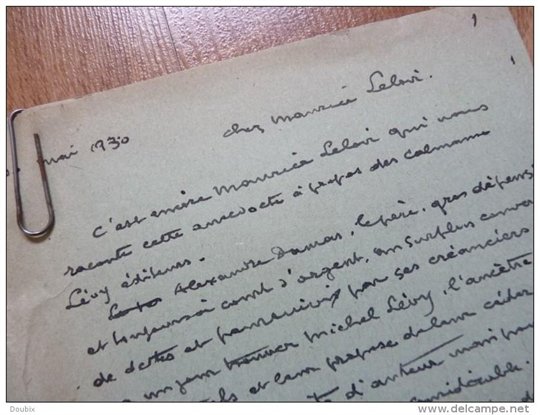 mai 1930
chez Maurice Leloir.
C'est encore Maurice Leloir qui nous
raconte cette anecdote à propos des Calmann
Lévy éditeurs.
Alexandre Dumas, le père, gros dépensi
et toujours à court d'argent, au surplus couver
de dettes et poursuivi par ses créanciers
un jour trouver Michel Lévy, l'ancêtre
et leur propose de leur céder
d'auteur
Doubix
www.delcampe.net